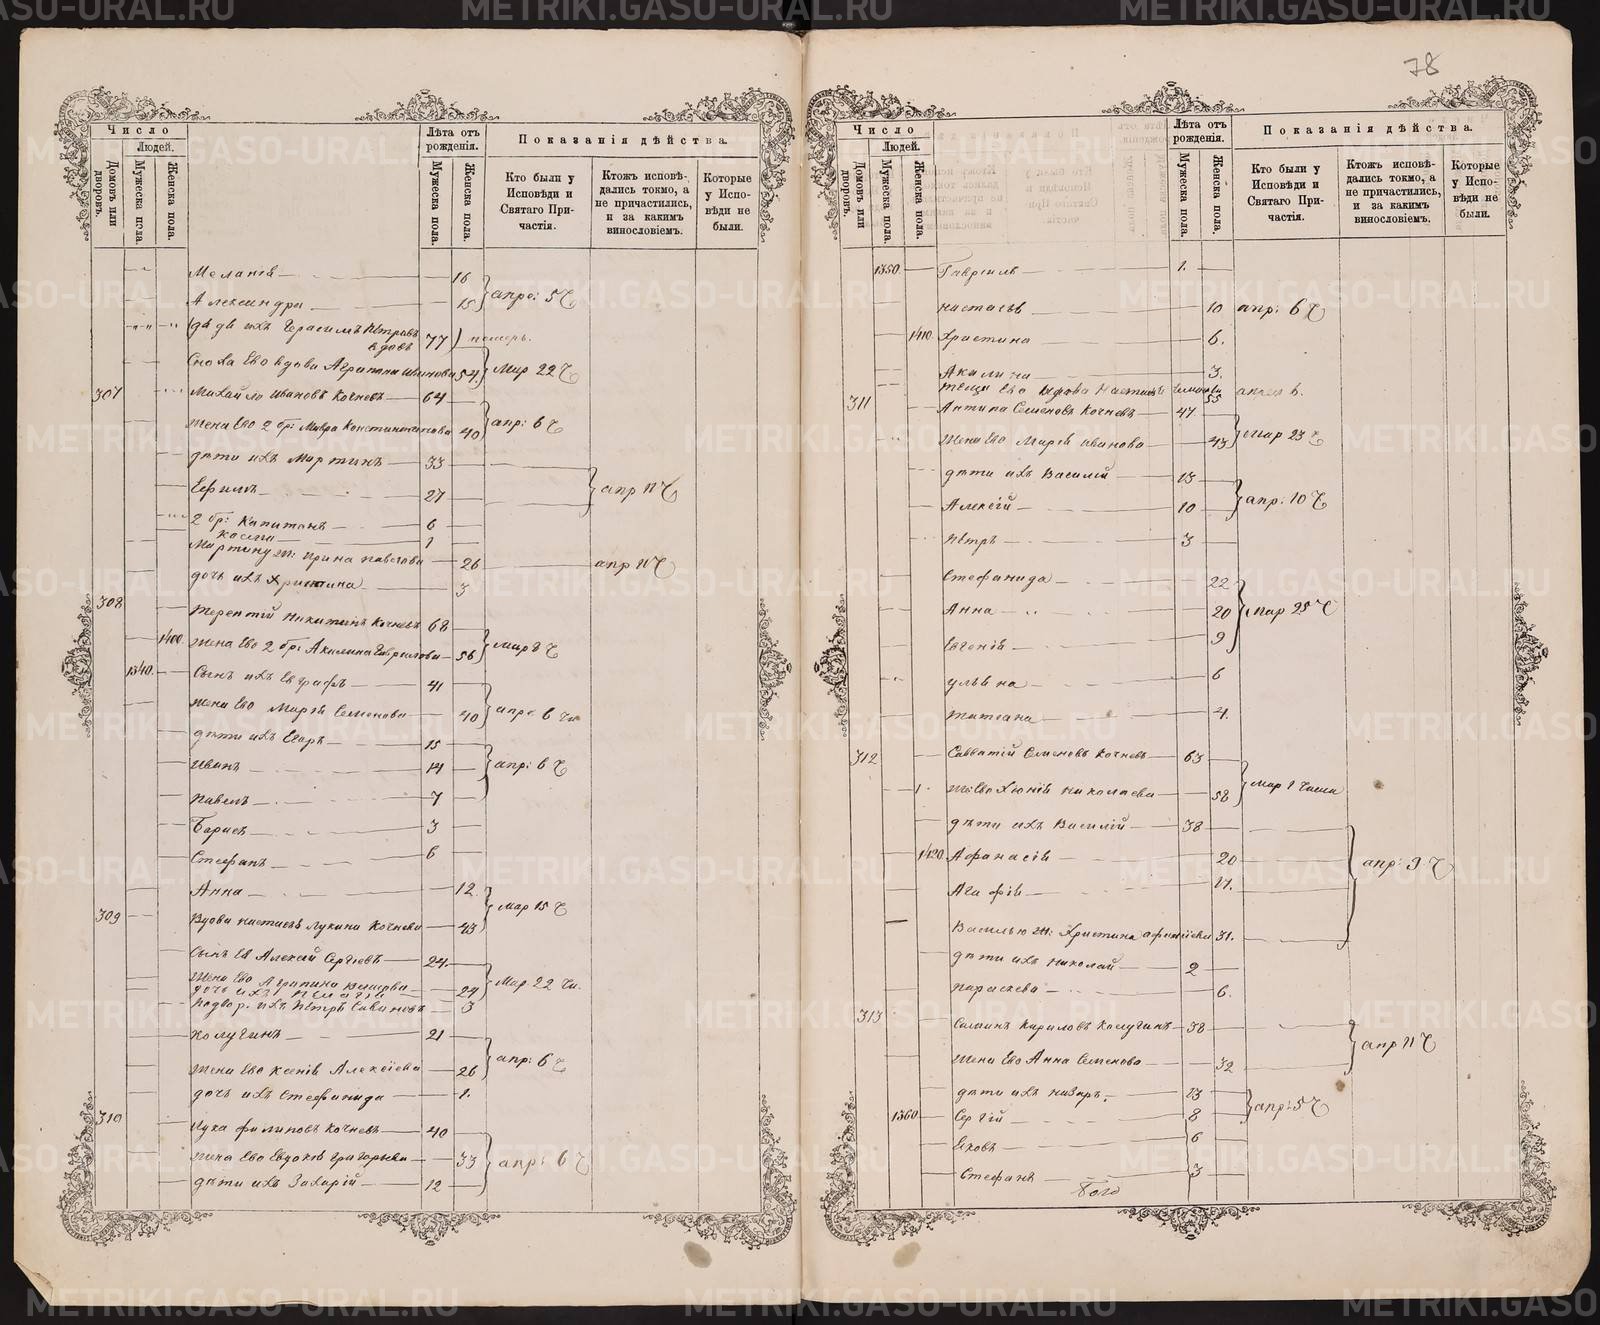 78
Число
Людей.
Домовъ или дворовъ.
Мужеска пола.
Женска пола.
Лѣта отъ рожденія.
Мужеска пола.
Женска пола.
Показанія дѣйства.
Кто были у Исповѣди и Святаго Причастія.
Ктожъ исповѣдались токмо, а не причастились, и за какимъ винословіемъ.
Которые у Исповѣди не были.
Меланія 16
Александра 15 апре: 5 Ч
Герасимъ Петровъ
вдовъ 77 померъ.
Сноха Ево вдова Агрипина Иванова 54. Мар 22 Ч
307 Михайло Ивановъ Кочневъ 64
Жена Ево 2 бр: Мавра Константинова 40 апр: 6 Ч
дѣти ихъ Мартинъ 33
Ефимъ 27 апр 11 Ч
2 бр: Капитонъ 6
Косма 1
Мартину ж: Ирина Павлова 26 апр 11 Ч
дочь ихъ Христина 3
308 Терентій Никитинъ Кочневъ 68
1400. Жена Ево 2 бр: Акилина Гаврилова 56 мар 8 Ч
1340. Сынъ ихъ Евграфъ 41
Жена Ево Марія Семенова 40 апре 6 Ча
дѣти ихъ Егоръ 15
Иванъ 14 апр: 6 Ч
Павелъ 7
Борисъ 3
Стефанъ 6
Анна 12
309 Вдова Настасья Лукина Кочнева 43 Мар 15 Ч
Сынъ Ея Алексѣй Сергѣевъ 24.
Жена Ево Агрипина 24 Мар 22 Ча.
дочь ихъ Пелагія 3
Подвор. ихъ Петръ Савиновъ
Колугинъ 21
Жена Ево Ксенія Алексіева 26 апр: 6 Ч
дочь ихъ Стефанида 1.
310 Лука Филиповъ Кочневъ 40
Жена Ево Евдокія Григорьева 33 апр: 6 Ч
дѣти ихъ Захарій 12
Число
Людей.
Домовъ или дворовъ.
Мужеска пола.
Женска пола.
Лѣта отъ рожденія.
Мужеска пола.
Женска пола.
Показанія дѣйства.
Кто были у Исповѣди и Святаго Причастія.
Ктожъ исповѣдались токмо, а не причастились, и за какимъ винословіемъ.
Которые у Исповѣди не были.
1350. Гавріилъ 1.
Настасья 10 апр: 6 Ч
1410. Христина 6.
Акилина 3.
теща Ево вдова Настасья 55 апрел 6.
311 Антипа Семеновъ Кочневъ 47
Жена Ево Марія Иванова 43 Мар 23 Ч
дѣти ихъ Василій 13
Алексій 10 апр: 10 Ч
Петръ 3
Стефанида 22
Анна 20 Мар 25 Ч
Евгенія 9
Ульяна 6
Татіана 4.
312 Савватій Семеновъ Кочневъ 63
Же: Ево Хіонія Николаева 58 Мар 1 Числа
дѣти ихъ Василій 38
1420. Афанасія 20 апр: 9 Ч
Агафія 17.
Василью ж: Христина 31.
дѣти ихъ Николай 2
Параскева 6.
313 Кириловъ Колугинъ 38
Жена Ево Анна Семенова 32 апр 11 Ч
дѣти ихъ Назаръ. 13
1360 Сергій 8 апр: 5 Ч
Яковъ 6
Стефанъ 3
METRIKI.GASO-URAL.RU